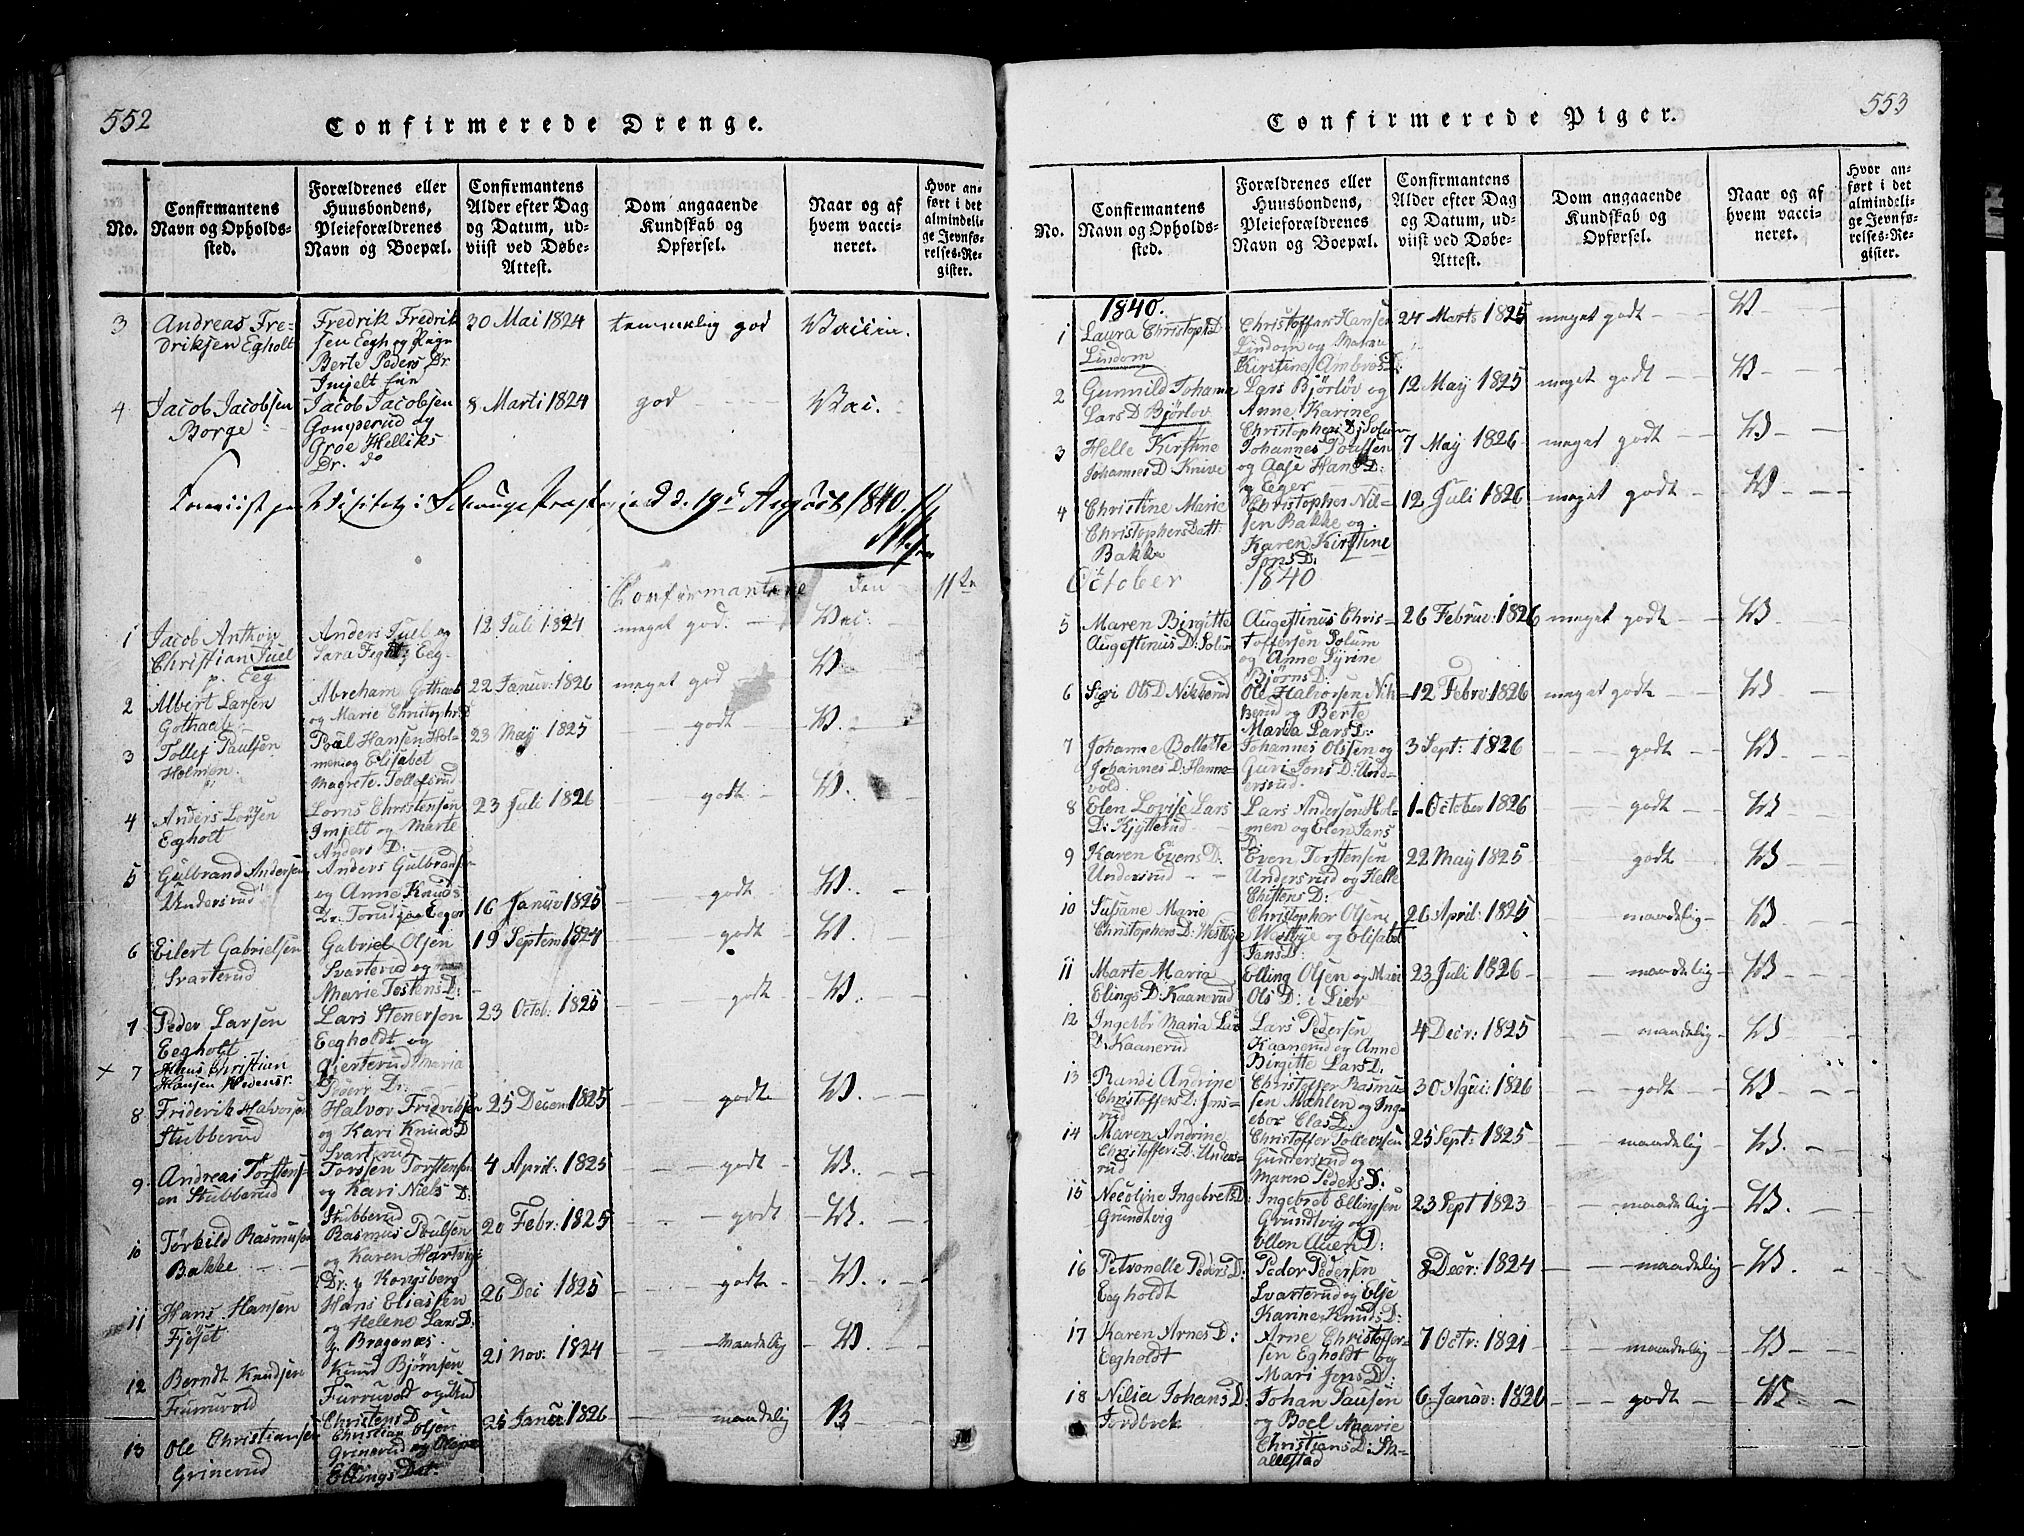 552
Confirmerede Drenge.
No.
Confirmantens
Navn og Opholds-
sted.
Forældrenes eller
Huusbondens,
Pleieforældrenes
Navn og Boepæl.
Confirmantens
Alder efter Dag
og Datum, ud-
viist ved Døbe-
Attest.
Dom angaaende
Kundskab og
Opførsel.
Naar og af
hvem vacci-
neret.
Hvor an-
ført i det
almindeli-
ge Jevnfø-
relses-Re-
gister.
3
Andreas Fre-
driksen Egholt
Fredrik Fredrik
sen Eegh og
Berte Peders Dr.
Imjelt
30 Mai 1824
temmelig god
Vaccin.
4
Jacob Jacobsen
Borge
Jacob Jacobsen
Gomperud og
Groe Helliks
Dr. do
8 Marti 1824
god
Vac.
August 1840.
Confirmantene den 11te
1
Jacob Anthon
Christian Juel
p. Eeg
Anders Juel og
Sara
Eeg
12 Juli 1824
meget god
Vac.
2
Albert Larsen
Gothaab
Abreham Gothaab
og Marie Christophs D
22 Januv: 1826
meget god
V.
3
Tollef Paulsen
Holmen
Poul Hansen Hol-
men og Elisabet
Magrete Tollefsrud
23 May 1825
godt
V.
4
Anders Lorsen
Egholt
Lorns Christensen
Imjelt og Marte
Anders D:
23 Juli 1826
godt
V.
5
Gulbrand Andersen
Undersrud
Anders Gulbransen
og Anne Knuds
Dr. Eger
16 Januv 1825
godt
V.
6
Eilert Gabrielsen
Svarterud
Gabriel Olsen
Svarterud og
Marie Tostens D:
19 Septem 1824
godt
V.
7
Peder Larsen
Eegholt
Lars Stenersen
Eegholdt og
Gjerterud Maria
Dr.
23 Octob: 1825
godt
V.
x 7
Hans Christian
Hansen
8
Friderik Halvorsen
Stubberud
Halvor Fridriksen
og Kari Knuds D
Svarterud
25 Decem 1825
godt
V.
9
Andreas Torstens-
en Stubberud
Torsten Torstensen
og Kari Niels D:
Stubberud
4 April: 1825
godt
V.
10
Torkild Rasmusen
Bakke
Rasmus Poulsen
og Karen Hartvigs
Dr: p Kongsberg
20 Febr: 1825
godt
V.
11
Hans Hansen
Fjöset
Hans Eliassen
og Helene Lars D:
p. Bragenæs
26 Dec 1825
godt
V.
12
Berndt Knudsen
Furruvold
Knud Bjørnsen
Furruvold og
Christens D
21 Nov: 1824
maadelig
V.
13
Ole Christiansen
Grinerud
Christian Olsen
Grinerud og
Ellings Dat:
25 Janu 1826
maadelig
V
553
Confirmerede Piger.
No.
Confirmantens
Navn og Opholds-
sted.
Forældrenes eller
Huusbondens,
Pleieforældrenes
Navn og Boepæl.
Confirmantens
Alder efter Dag
og Datum, ud-
viist ved Døbe-
Attest.
Dom angaaende
Kundskab og
Opførsel.
Naar og af
hvem vacci-
neret.
Hvor an-
ført i det
almindelig-
ge Jevnfø-
relses-Re-
gister.
1840.
1
Laura Christophs D
Lindom
Christoffer Hansen
Lindom og
Kirstine Ambros D:
24 Marts 1825
meget godt
V
2
Gunnild Johana
Lars D Bjørløv
Lars Bjørløv og
Anne Karine
Christophers D: Solum
12 May 1825
meget godt
V
3
Helle Kirstine
Johannes D: Knive
Johannes Poulsen
og Aase Hans D:
og Eger
7 May 1826
meget godt
V
4
Christine Marie
Christophers Datt:
Bakke
Christopher Nil-
sen Bakke og
Karen Kirstine
Jons D:
12 Juli 1826
meget godt
V
October 1840
5
Maren Birgitte
Augestinus D: Solum
Augestinus Chris-
toffersen Solum
og Anne Syrine
Bjørns D:
26 Februv: 1826
meget godt
V
6
Sigri Ols D Nikkerud
Ole Halvorsen Nik-
kerud og Berte
Maria Lars D:
12 Febrv 1826
meget godt
V
7
Johanne Bollette
Johannes D: Hanne-
vold
Johannes Olsen og
Guri Jons D: Und-
ersrud
3 Sept: 1826
godt
V
8
Elen Lovise Lars
D: Kjytterud
Lars Andersen Hol-
men og Elen Jans
D:
1 October 1826
godt
V
9
Karen Evens D:
Undersrud
Even Torstensen
Undersrud og Helle
Christens D:
22 May 1825
godt
V
10
Susane Marie
Christophers D: Westbye
Christopher Olsen
Westbye og Elisabet
Jans D:
26 April: 1825
maadelig
V
11
Marte Maria
Elings D: Kaanerud
Elling Olsen og Mari
Ols D: i Lier
23 Juli 1826
maadelig
V
12
Ingebor Maria Lars
D: Kaanerud
Lars Pedersen
Kaanerud og Anne
Birgitte Lars D:
4 Decr: 1825
maadelig
V
13
Randi Andrine
Christoffers D: Jens-
rud
Christoffer Rasmu-
sen Mæhlen og Ing-
ebor Clas D:
30 Agu: 1826
godt
V
14
Maren Andrine
Christoffers D: Unders-
rud
Christoffer Tollevsen
Gundersrud og
Maren Peders D:
25 Sept: 1825
maadelig
V
15
Necoline Ingebrets D:
Grundtvig
Ingebret Ellingsen
Grundtvig og
Ellen Auen D:
23 Sept 1823
maadelig
V
16
Petronelle Peders D:
Eegholdt
Peder Pedersen
Svarterud og Else
Karine Knuds D:
8 Decr: 1824
maadelig
V
17
Karen Arnes D:
Eegholdt
Arne Christoffer-
sen Egholdt og
Mari Jens D:
7 Octr: 1821
maadelig
V
18
Nilia Johans D:
Jordbrek
Johan Pausen
og Boel Maarie
Christians D: St-
allestad
6 Janov: 1820
godt
V